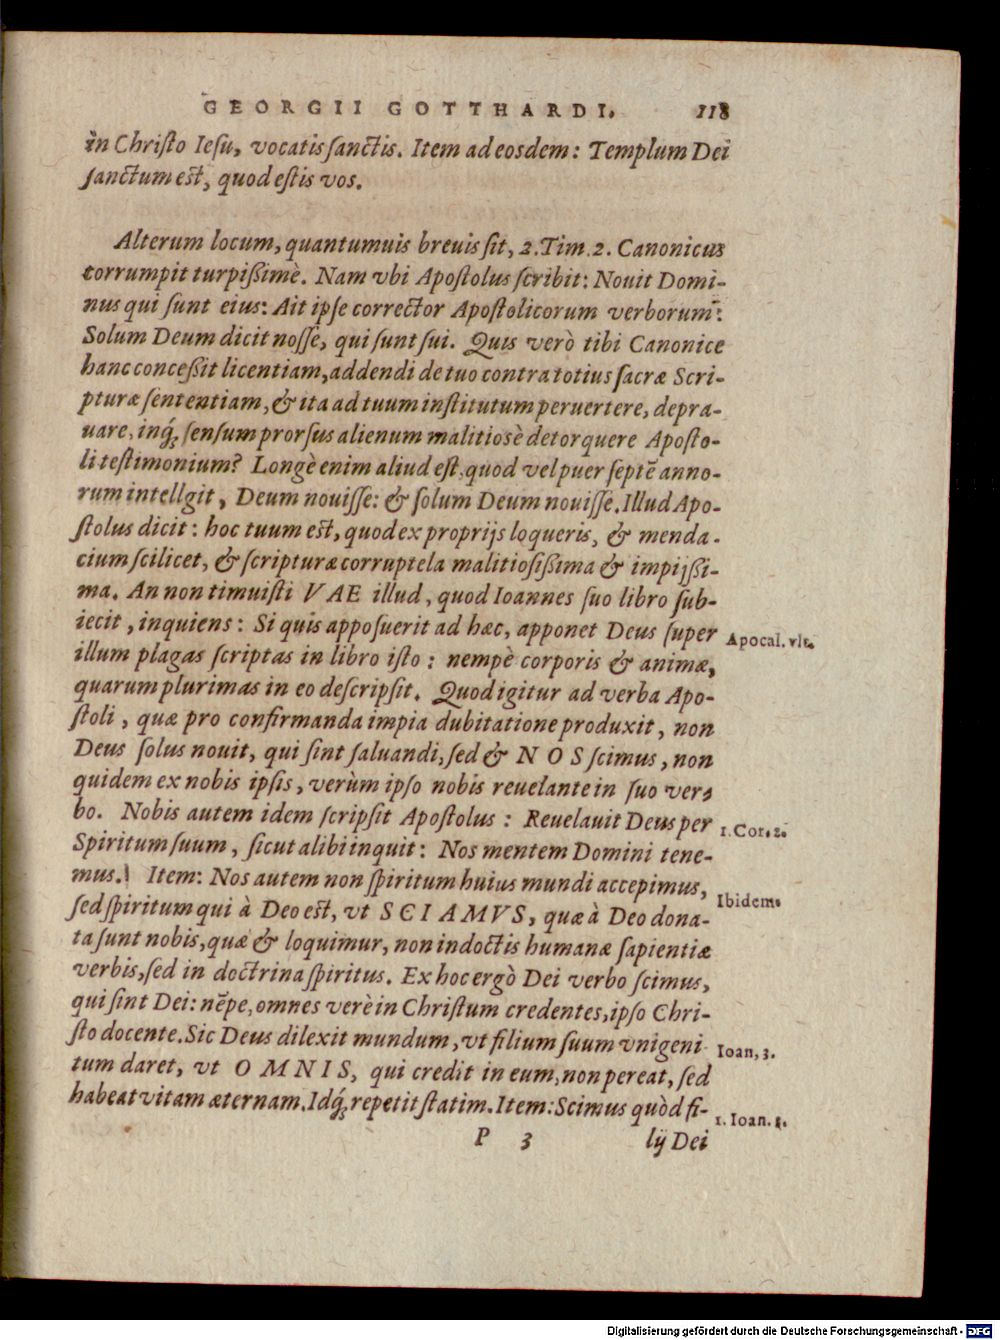 GEORGII GOTTHARDI. 118
in Christo Iesu, vocatis sanctis. Item ad eosdem: Templum Dei
sanctum est, quod estis vos.
Alterum locum, quantumuis breuis sit, 2. Tim. 2. Canonicus
corrumpit turpißimè. Nam vbi Apostolus scribit: Nouit Domi-
nus qui sunt eius: Ait ipse corrector Apostolicorum verborum:
Solum Deum dicit nosse, qui sunt sui. Quis verò tibi Canonice
hanc conceßit licentiam, addendi de tuo contra totius sacræ Scri-
pturæ sententiam, & ita ad tuum institutum peruertere, depra-
uare, inq́; sensum prorsus alienum malitiosè detorquere Aposto-
li testimonium? Longè enim aliud est, quod vel puer septē anno-
rum intellgit, Deum nouisse: & solum Deum nouisse. Illud Apo-
stolus dicit: hoc tuum est, quod ex proprijs loqueris, & menda-
cium scilicet, & scripturæ corruptela malitiosißima & impijßi-
ma. An non timuisti VAE illud, quod Ioannes suo libro sub-
iecit, inquiens: Si quis apposuerit ad hæc, apponet Deus super
Apocal. vlt.
illum plagas scriptas in libro isto: nempè corporis & animæ,
quarum plurimas in eo descripsit. Quod igitur ad verba Apo-
stoli, quæ pro confirmanda impia dubitatione produxit, non
Deus solus nouit, qui sint saluandi, sed & NOS scimus, non
quidem ex nobis ipsis, verùm ipso nobis reuelante in suo ver-
bo. Nobis autem idem scripsit Apostolus: Reuelauit Deus per
1. Cor. 2.
Spiritum suum, sicut alibi inquit: Nos mentem Domini tene-
mus. Item: Nos autem non spiritum huius mundi accepimus,
Ibidem.
sed spiritum qui à Deo est, vt SCIAMVS, quæ à Deo dona-
ta sunt nobis, quæ & loquimur, non in doctis humanæ sapientiæ
verbis, sed in doctrina spiritus. Ex hoc ergò Dei verbo scimus,
qui sint Dei: nēpe, omnes verè in Christum credentes, ipso Chri-
sto docente. Sic Deus dilexit mundum, vt filium suum vnigeni
Ioan, 3.
tum daret, vt OMNIS, qui credit in eum, non pereat, sed
habeat vitam æternam. Idq́; repetit statim. Item: Scimus quòd fi-
1. Ioan. 5.
P 3 lij Dei
Digitalisierung gefördert durch die Deutsche Forschungsgemeinschaft - DFG